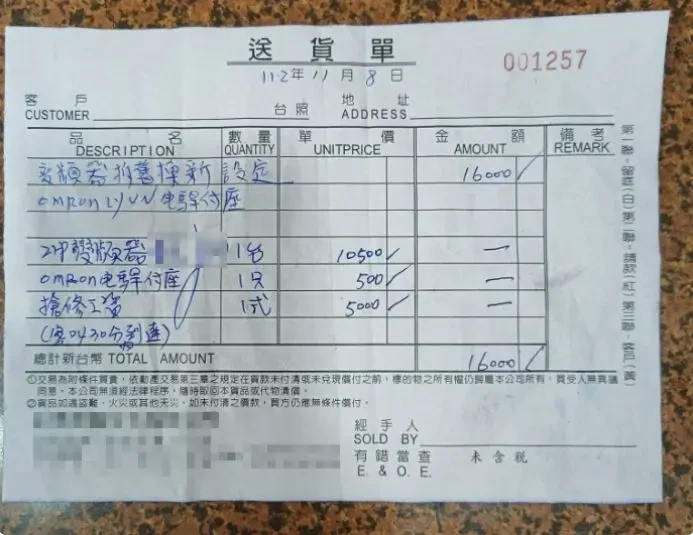 送貨單
001257
112年11月8日
客戶 台照 地址
CUSTOMER ADDRESS
品名 數量 單價 金額 備考
DESCRIPTION QUANTITY UNITPRICE AMOUNT REMARK
變頻器拆舊換新設定 16000
omron LY4N 电驛付座
2HP變頻器 1台 10500 —
omron电驛付座 1只 500 —
搶修工資 1式 5000 —
(客0430分到達)
總計新台幣 TOTAL AMOUNT 16000
①交易為附條件買賣,依動產交易第三章之規定在貨款未付清或未兌現償付之前,標的物之所有權仍歸屬本公司所有,買受人無異議
同意。本公司無須經法律程序,隨時取回本貨品或代物清償。
②貨品如遇盜難、火災或其他天災,如未付清之價款,買方仍應無條件償付。
經手人
SOLD BY
有錯當查 未含稅
E. & O. E.
第一聯:留底(白)第二聯:請款(紅)第三聯:客戶(黃)